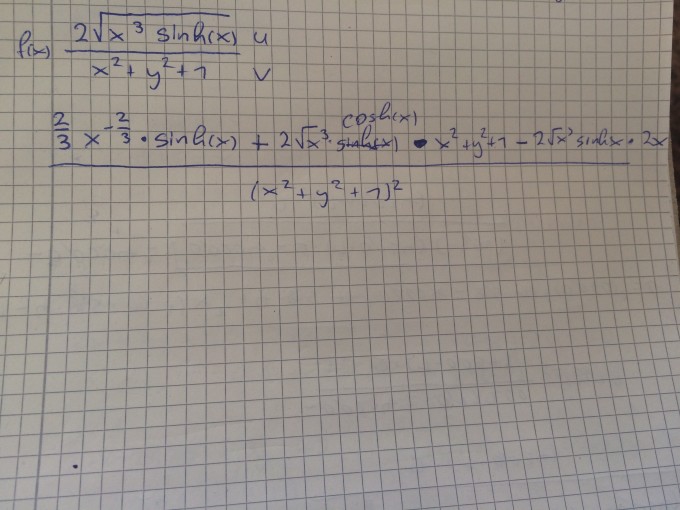 f(x) 2√x³ sinh(x) u
x² + y² + 1 v
cosh(x)
2/3 x^-2/3 · sinh(x) + 2√x³ · sinh(x) · x² + y² + 1 - 2√x³ sinhx · 2x
(x² + y² + 1)²